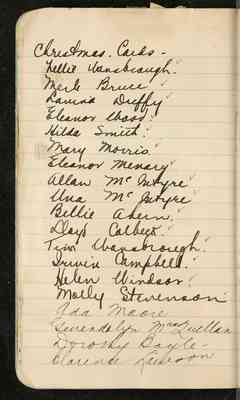 Christmas. Cards -
Nellie Wansbrough.
Merle Bruce.
Lavina Duffy
Eleanor Wood.
Hilda Smith.
Mary Morris.
Eleanor Menary
Allan McIntyre
Una McIntyre
Bellie Ahern.
Calbeck.
Wansborough.
Irwin Campbell.
Helen Windsor.
Molly Stevenson
Ida Moore
Gwendolyn MacQuillan
Dorothy Doyle -
Clarence